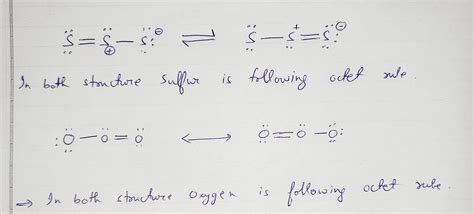 S̈=S̈⊕-S̈:⊖ ⇌ S̈-S̈+=S̈:⊖
In both structure sulfur is following octet rule.
:Ö-Ö=Ö ⟷ Ö=Ö-Ö:
⇒ In both structure oxygen is following octet rule.